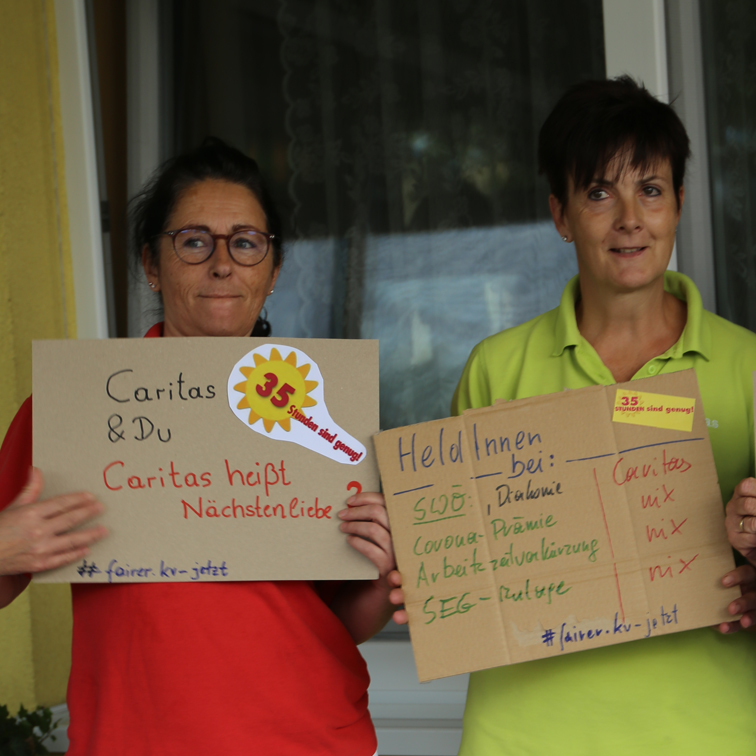 Caritas
& Du
35
Stunden sind genug!
Caritas heißt
Nächstenliebe ?
# fairer.kv-jetzt
HeldInnen
bei:
35
STUNDEN sind genug!
SWÖ, Diakonie
Caritas
Corona-Prämie
nix
Arbeitszeitverkürzung
nix
SEG-Zulage
nix
#fairer.kv-jetzt